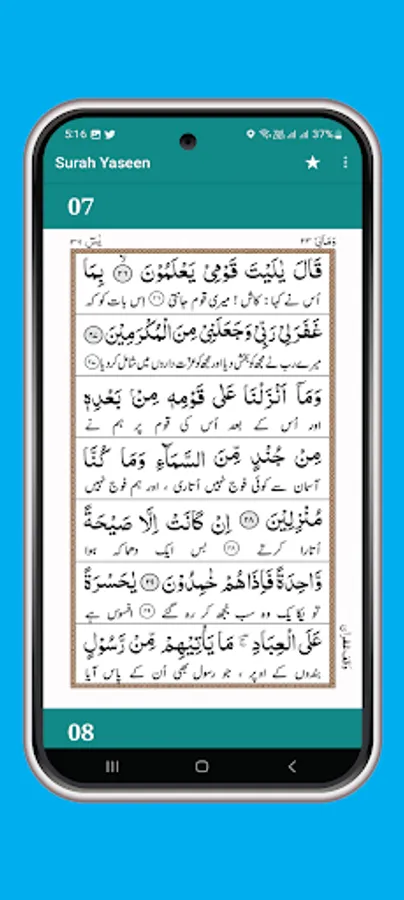 5:16 37%
Surah Yaseen
07
وَمَالِیَ ۲۳ یٰسٓ ۳۶
قَالَ یٰلَیْتَ قَوْمِیْ یَعْلَمُوْنَ ﴿۲۶﴾ بِمَا
اُس نے کہا: کاش! میری قوم جانتی ﴿۲۶﴾ اِس بات کو کہ
غَفَرَلِیْ رَبِّیْ وَجَعَلَنِیْ مِنَ الْمُکْرَمِیْنَ ﴿۲۷﴾
میرے رب نے مجھ کو بخش دیا اور مجھ کو عزّت داروں میں شامل کر دیا ﴿۲۷﴾
وَمَاۤ اَنْزَلْنَا عَلٰی قَوْمِهٖ مِنْۢ بَعْدِهٖ
اور اُس کے بعد اُس کی قوم پر ہم نے
مِنْ جُنْدٍ مِّنَ السَّمَآءِ وَمَا کُنَّا
آسمان سے کوئی فوج نہیں اُتاری، اور ہم فوج نہیں
مُنْزِلِیْنَ ﴿۲۸﴾ اِنْ کَانَتْ اِلَّا صَیْحَةً
اُتارا کرتے ﴿۲۸﴾ بس ایک دھماکہ ہوا
وَّاحِدَةً فَاِذَاهُمْ خٰمِدُوْنَ ﴿۲۹﴾ یٰحَسْرَةً
تو یکایک وہ سب بجھ کر رہ گئے ﴿۲۹﴾ افسوس ہے
عَلَی الْعِبَادِ ۚ مَا یَاْتِیْهِمْ مِّنْ رَّسُوْلٍ
بندوں کے اوپر، جو رسول بھی اُن کے پاس آیا
08